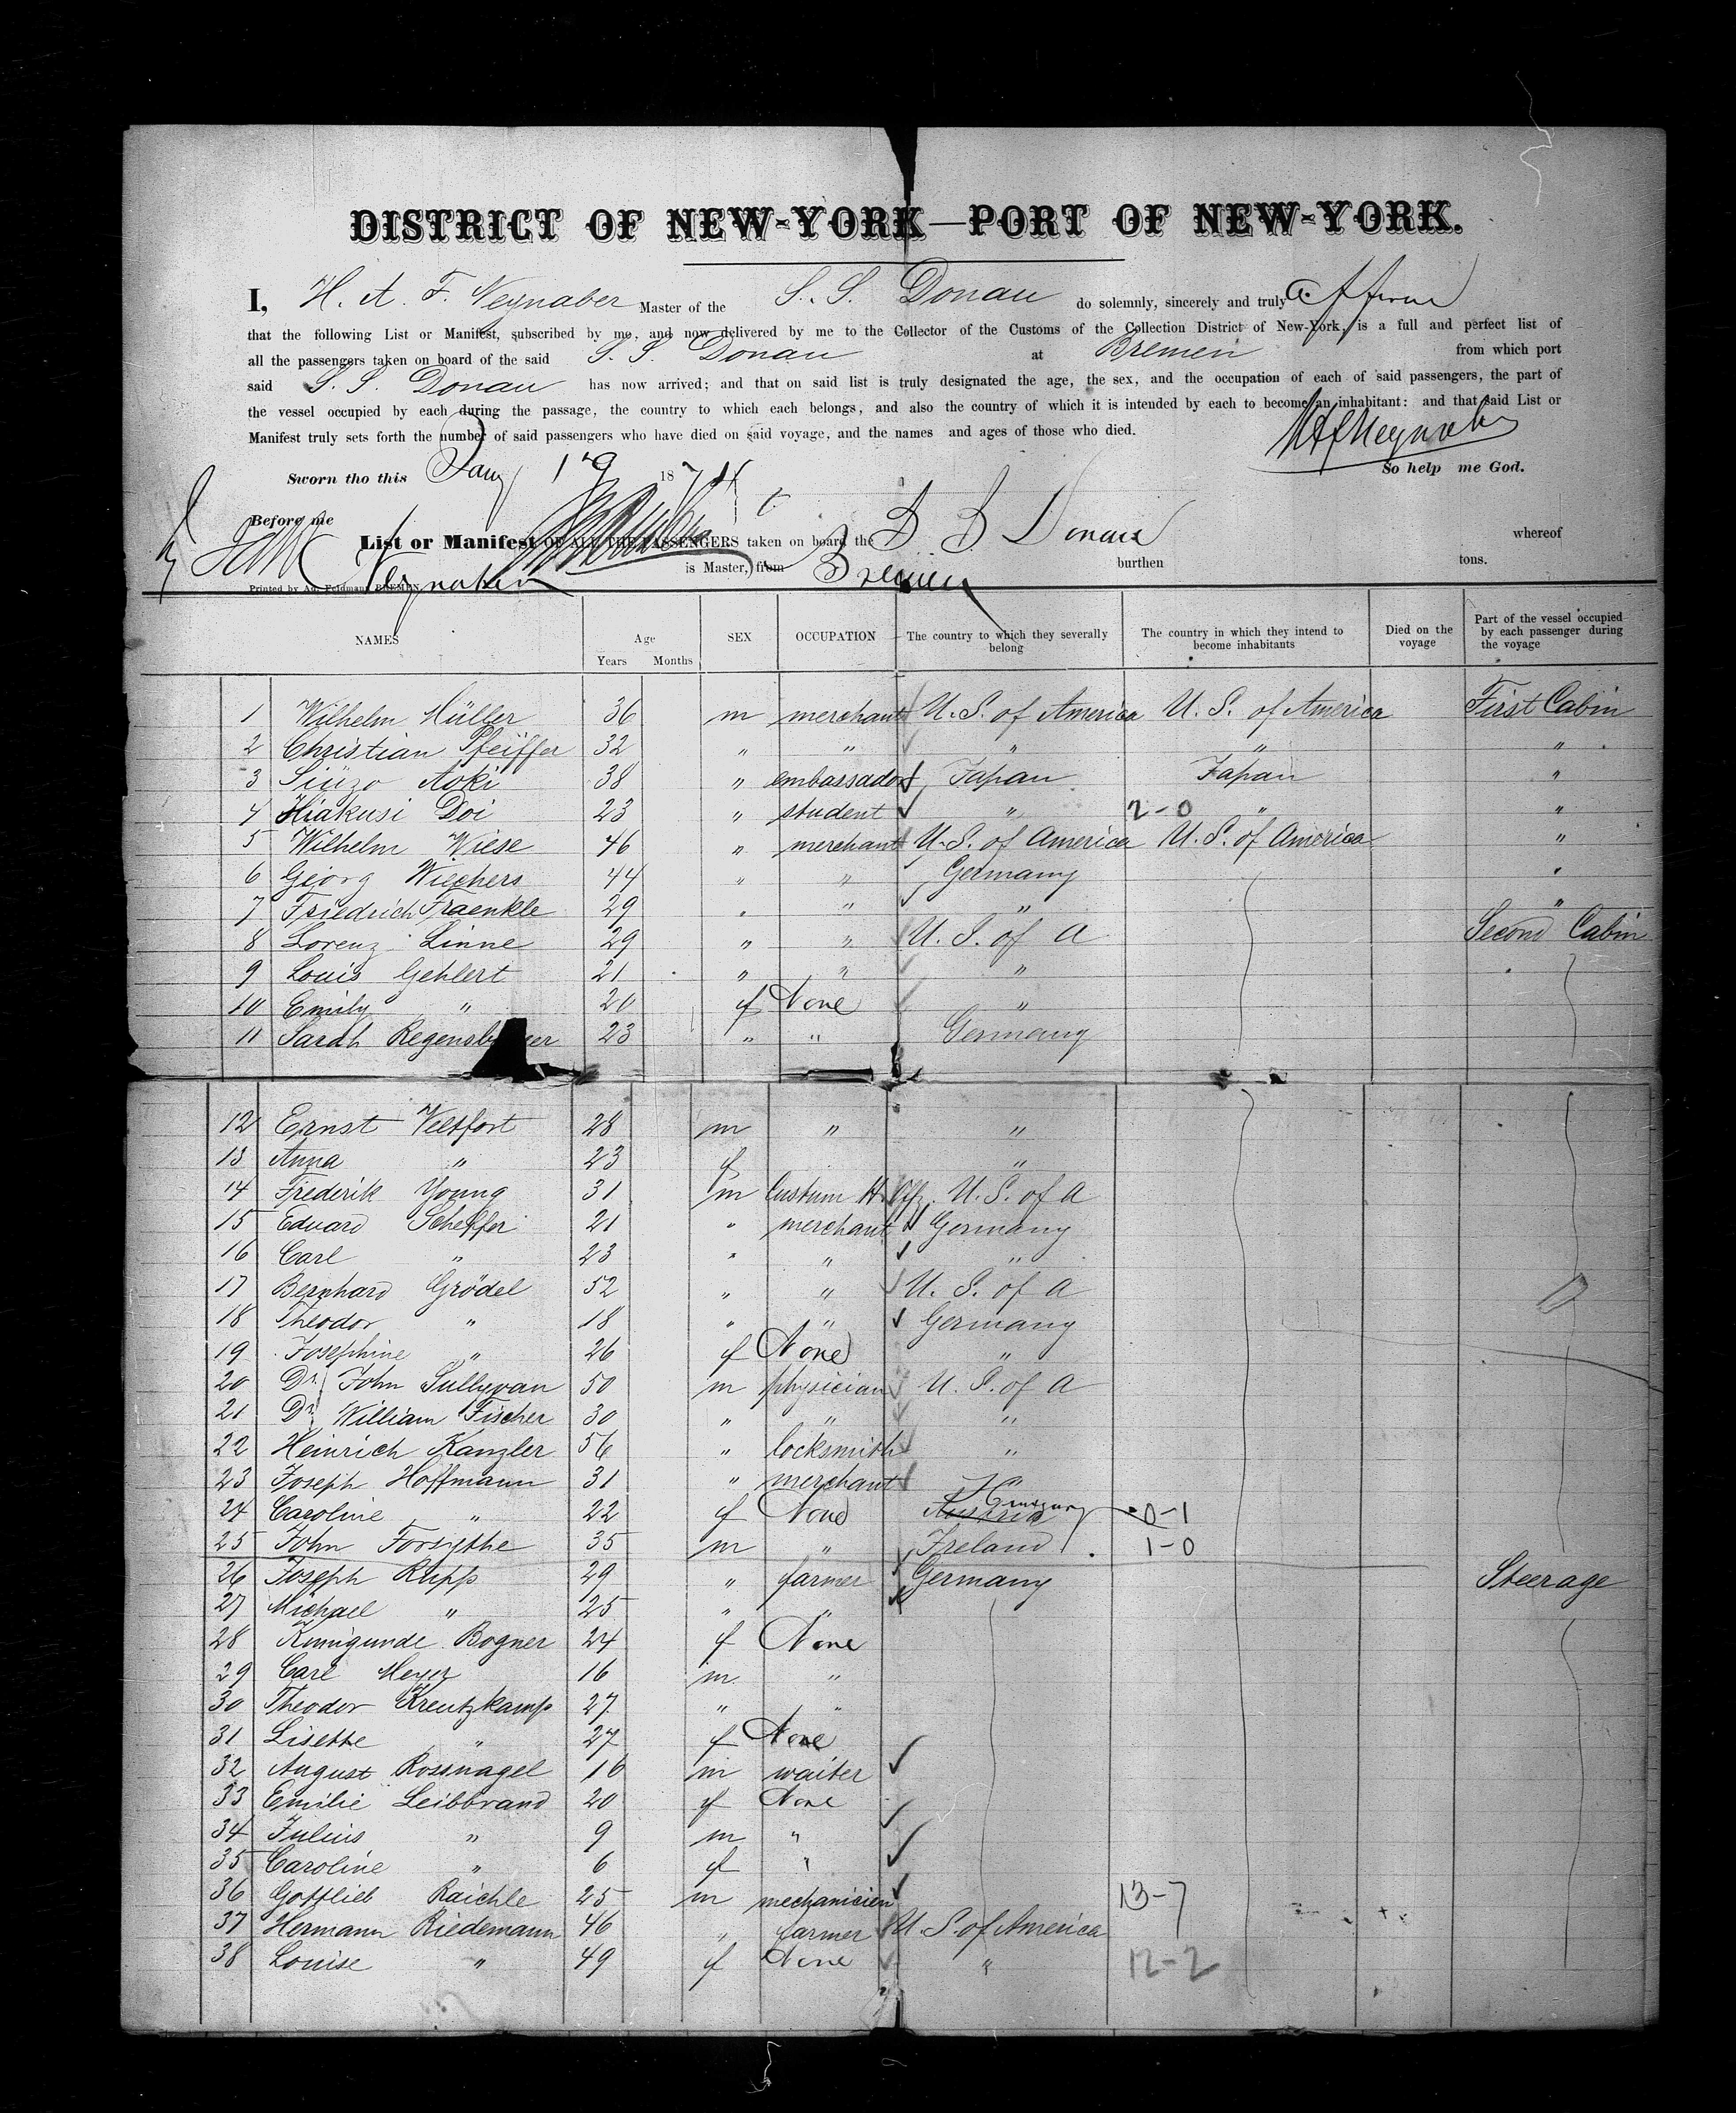 DISTRICT OF NEW-YORK—PORT OF NEW-YORK.
I, H. A. F. Neynaber Master of the S. S. Donau do solemnly, sincerely and truly affirm
that the following List or Manifest, subscribed by me, and now delivered by me to the Collector of the Customs of the Collection District of New-York, is a full and perfect list of
all the passengers taken on board of the said S. S. Donau at Bremen from which port
said S. S. Donau has now arrived; and that on said list is truly designated the age, the sex, and the occupation of each of said passengers, the part of
the vessel occupied by each during the passage, the country to which each belongs, and also the country of which it is intended by each to become an inhabitant: and that said List or
Manifest truly sets forth the number of said passengers who have died on said voyage, and the names and ages of those who died.
HAFNeynaber
Sworn tho this Jany 19 1874 So help me God.
Before me
List or Manifest OF ALL THE PASSENGERS taken on board the S S Donau whereof
Neynaber is Master, from Bremen burthen tons.
Printed by Ad. Feldmann BREMEN
NAMES Age Years Months SEX OCCUPATION The country to which they severally belong The country in which they intend to become inhabitants Died on the voyage Part of the vessel occupied by each passenger during the voyage
1 Wilhelm Müller 36 m merchant U. S. of America U. S. of America First Cabin
2 Christian Pfeiffer 32 " " " " "
3 Siüzo Aoki 38 " embassador Japan Japan "
4 Hiakusi Doi 23 " student " 2-0 " "
5 Wilhelm Wiese 46 " merchant U. S. of America U. S. of America "
6 Georg Wiechers 44 " " Germany "
7 Friedrich Fraenkle 29 " " " "
8 Lorenz Linne 29 " " U. S. of A Second Cabin
9 Louis Gehlert 21 " " "
10 Emily " 20 f None "
11 Sarah Regensburger 23 " " Germany
12 Ernst Veltfort 28 m " "
13 Anna " 23 f "
14 Frederik Young 31 m Custum H. Off. U. S. of A
15 Eduard Scheffer 21 " merchant Germany
16 Carl " 23 " " "
17 Bernhard Grödel 52 " " U. S. of A
18 Theodor " 18 " " Germany
19 Josephine " 26 f None "
20 Dr. John Sullyvan 50 m physician U. S. of A
21 Dr. William Fischer 30 " " "
22 Heinrich Kanzler 56 " locksmith "
23 Joseph Hoffmann 31 " merchant "
24 Caroline " 22 f None Austria Hungary 0-1
25 John Forsythe 35 m " Ireland 1-0
26 Joseph Rupp 29 " farmer Germany Steerage
27 Michael " 25 " "
28 Kunigunde Bogner 24 f None
29 Carl Meyer 16 m "
30 Theodor Kreutzkamp 27 " "
31 Lisette " 27 f None
32 August Rossnagel 16 m waiter
33 Emilie Leibbrand 20 f None
34 Julius " 9 m "
35 Caroline " 6 f "
36 Gottlieb Raichle 25 m mechanicien 13-7
37 Hermann Riedemann 46 " farmer U. S. of America
38 Louise " 49 f None " 12-2